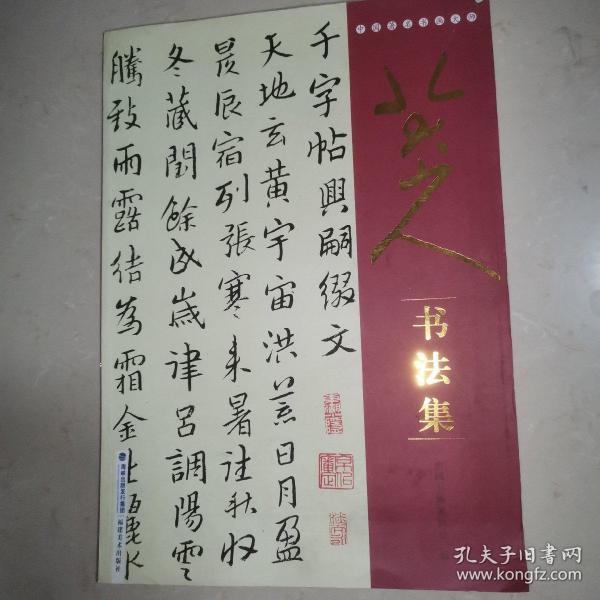 中国著名书画
八大山人
书法集
千字帖興嗣綴文
天地玄黄宇宙洪荒日月盈
昃辰宿列張寒来暑往秋收
冬藏閏餘成歲律吕調陽雲
騰致雨露结為霜金生麗水
海峡出版发行集团
福建美术出版社
孔夫子旧书网
www.kongfz.com